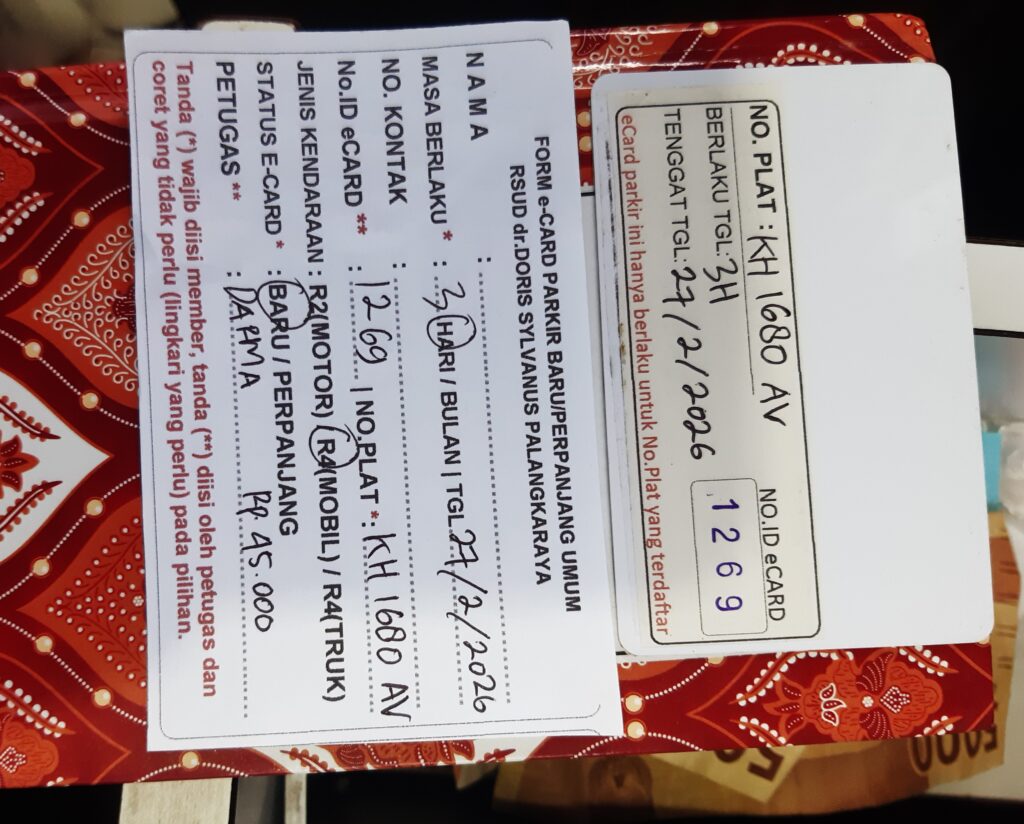 NO. PLAT : KH 1680 AV
NO.ID eCARD
BERLAKU TGL: 3H
1269
TENGGAT TGL: 27/2/2026
eCard parkir ini hanya berlaku untuk No.Plat yang terdaftar
FORM e-CARD PARKIR BARU/PERPANJANG UMUM
RSUD dr.DORIS SYLVANUS PALANGKARAYA
N A M A :
MASA BERLAKU * : 3 HARI / BULAN | TGL. 27/2/2026
NO. KONTAK :
No.ID eCARD ** : 1269 | NO.PLAT * : KH 1680 AV
JENIS KENDARAAN : R2(MOTOR) / R4(MOBIL) / R4(TRUK)
STATUS E-CARD * : BARU / PERPANJANG
PETUGAS ** : DARMA Rp. 45.000
Tanda (*) wajib diisi member, tanda (**) diisi oleh petugas dan
coret yang tidak perlu (lingkari yang perlu) pada pilihan.
5000